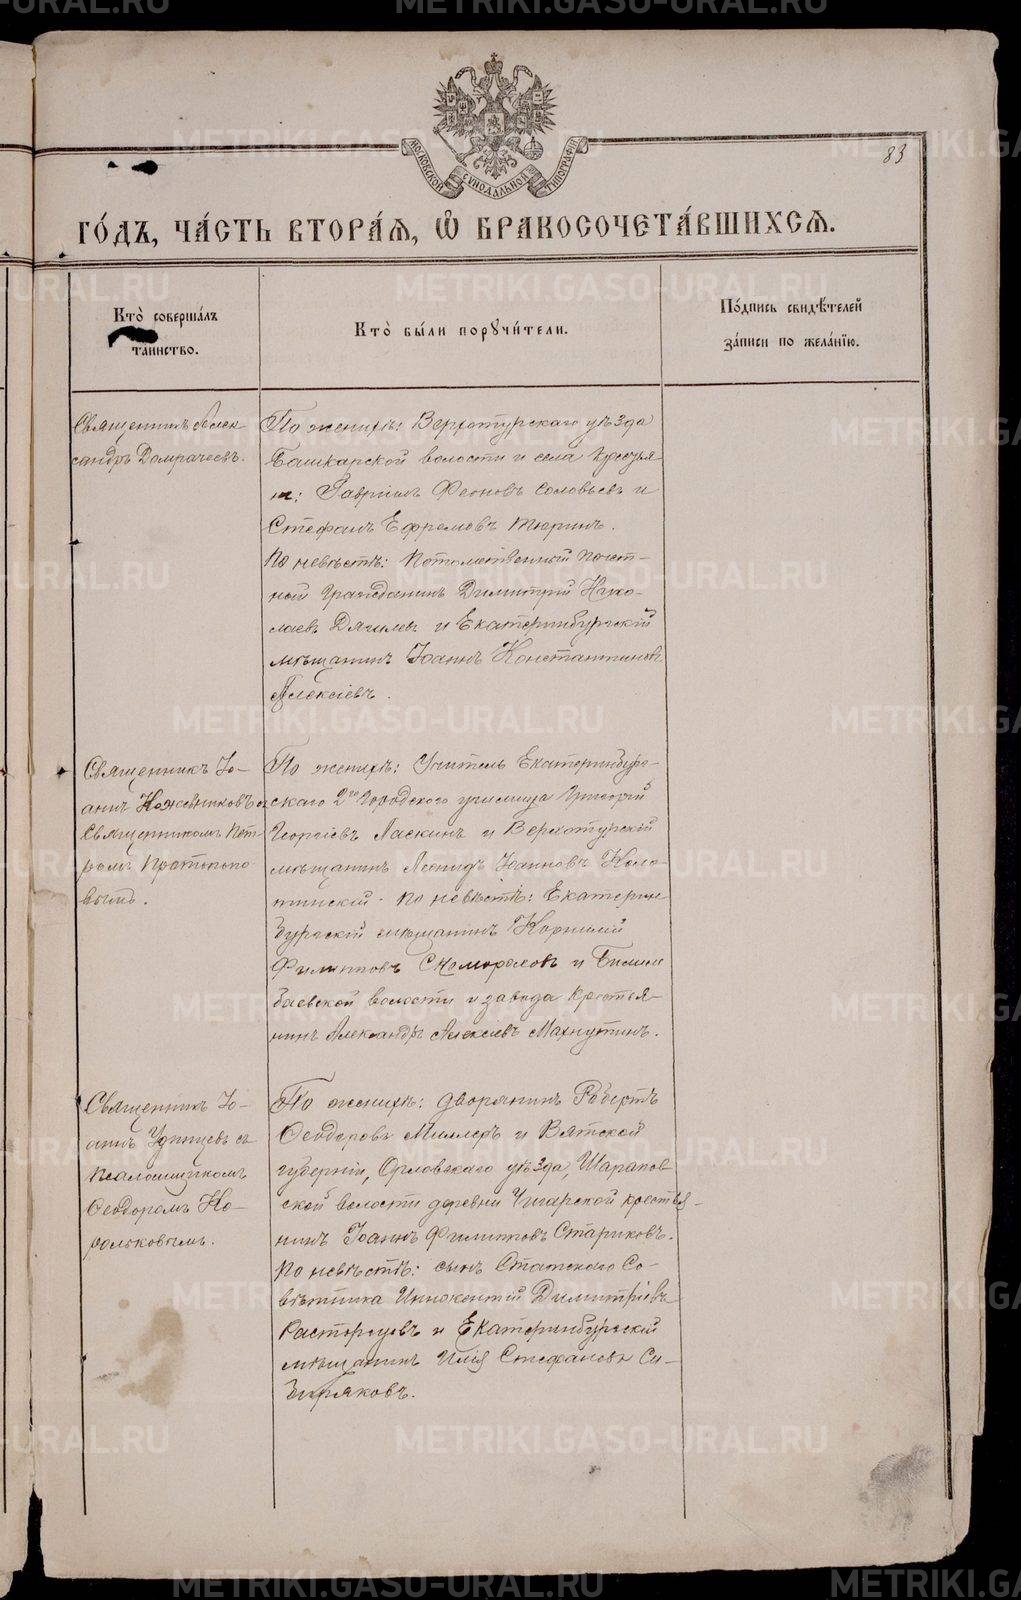 METRIKI.GASO-URAL.RU
МОСКОВСКОЙ СѴНОДАЛЬНОЙ ТИПОГРАФІИ
83
ГО́ДЪ, ЧА́СТЬ ВТОРА́Я, Ѡ БРАКОСОЧЕТА́ВШИХСЯ.
Кто̀ соверша́лъ
таинство.
Кто̀ бы́ли порꙋчи́тели.
По́дпись свидѣ́телей
за́писи по жела́нїю.
Священникъ Алек
сандръ Домрачевъ.
По женихѣ: Верхотурскаго уѣзда
Башкарской волости и села крестья
не: Гавріилъ Феоновъ Соловьевъ и
Стефанъ Ефремовъ Тюринъ.
По невѣстѣ: Потомственный почет-
ной гражданинъ Димитрій Нико-
лаевъ Дягилевъ и Екатеринбургскій
мѣщанинъ Іоаннъ Константиновъ
Алексіевъ.
Священникъ Іо-
аннъ Кожевниковъ съ
Священникомъ Пет
ромъ Протопопо
вымъ.
По женихѣ: Учитель Екатеринбург-
скаго 2го городскаго училища Григорій
Георгіевъ Ласкинъ и Верхотурскій
мѣщанинъ Леонидъ Іоанновъ Коло-
тинскій. По невѣстѣ: Екатерин
бургскій мѣщанинъ Корнилій
Филипповъ Скоморохов и Билим
баевской волости и завода крестья-
нинъ Александръ Алексіевъ Махнутинъ.
Священникъ Іо-
аннъ Удинцевъ съ
Псаломщикомъ
Ѳеодоромъ Ко-
рольковымъ.
По женихѣ: дворянинъ Робертъ
Ѳеодоровъ Миллеръ и Вятской
губерніи, Орловскаго уѣзда, Шарапов
ской волости деревни Чигарской крестья-
нинъ Іоаннъ Филипповъ Стариковъ.
По невѣстѣ: сынъ Статскаго Со-
вѣтника Иннокентій Димитріевъ
Расторгуевъ и Екатеринбургскій
мѣщанинъ Илія Стефановъ Си-
биряковъ.